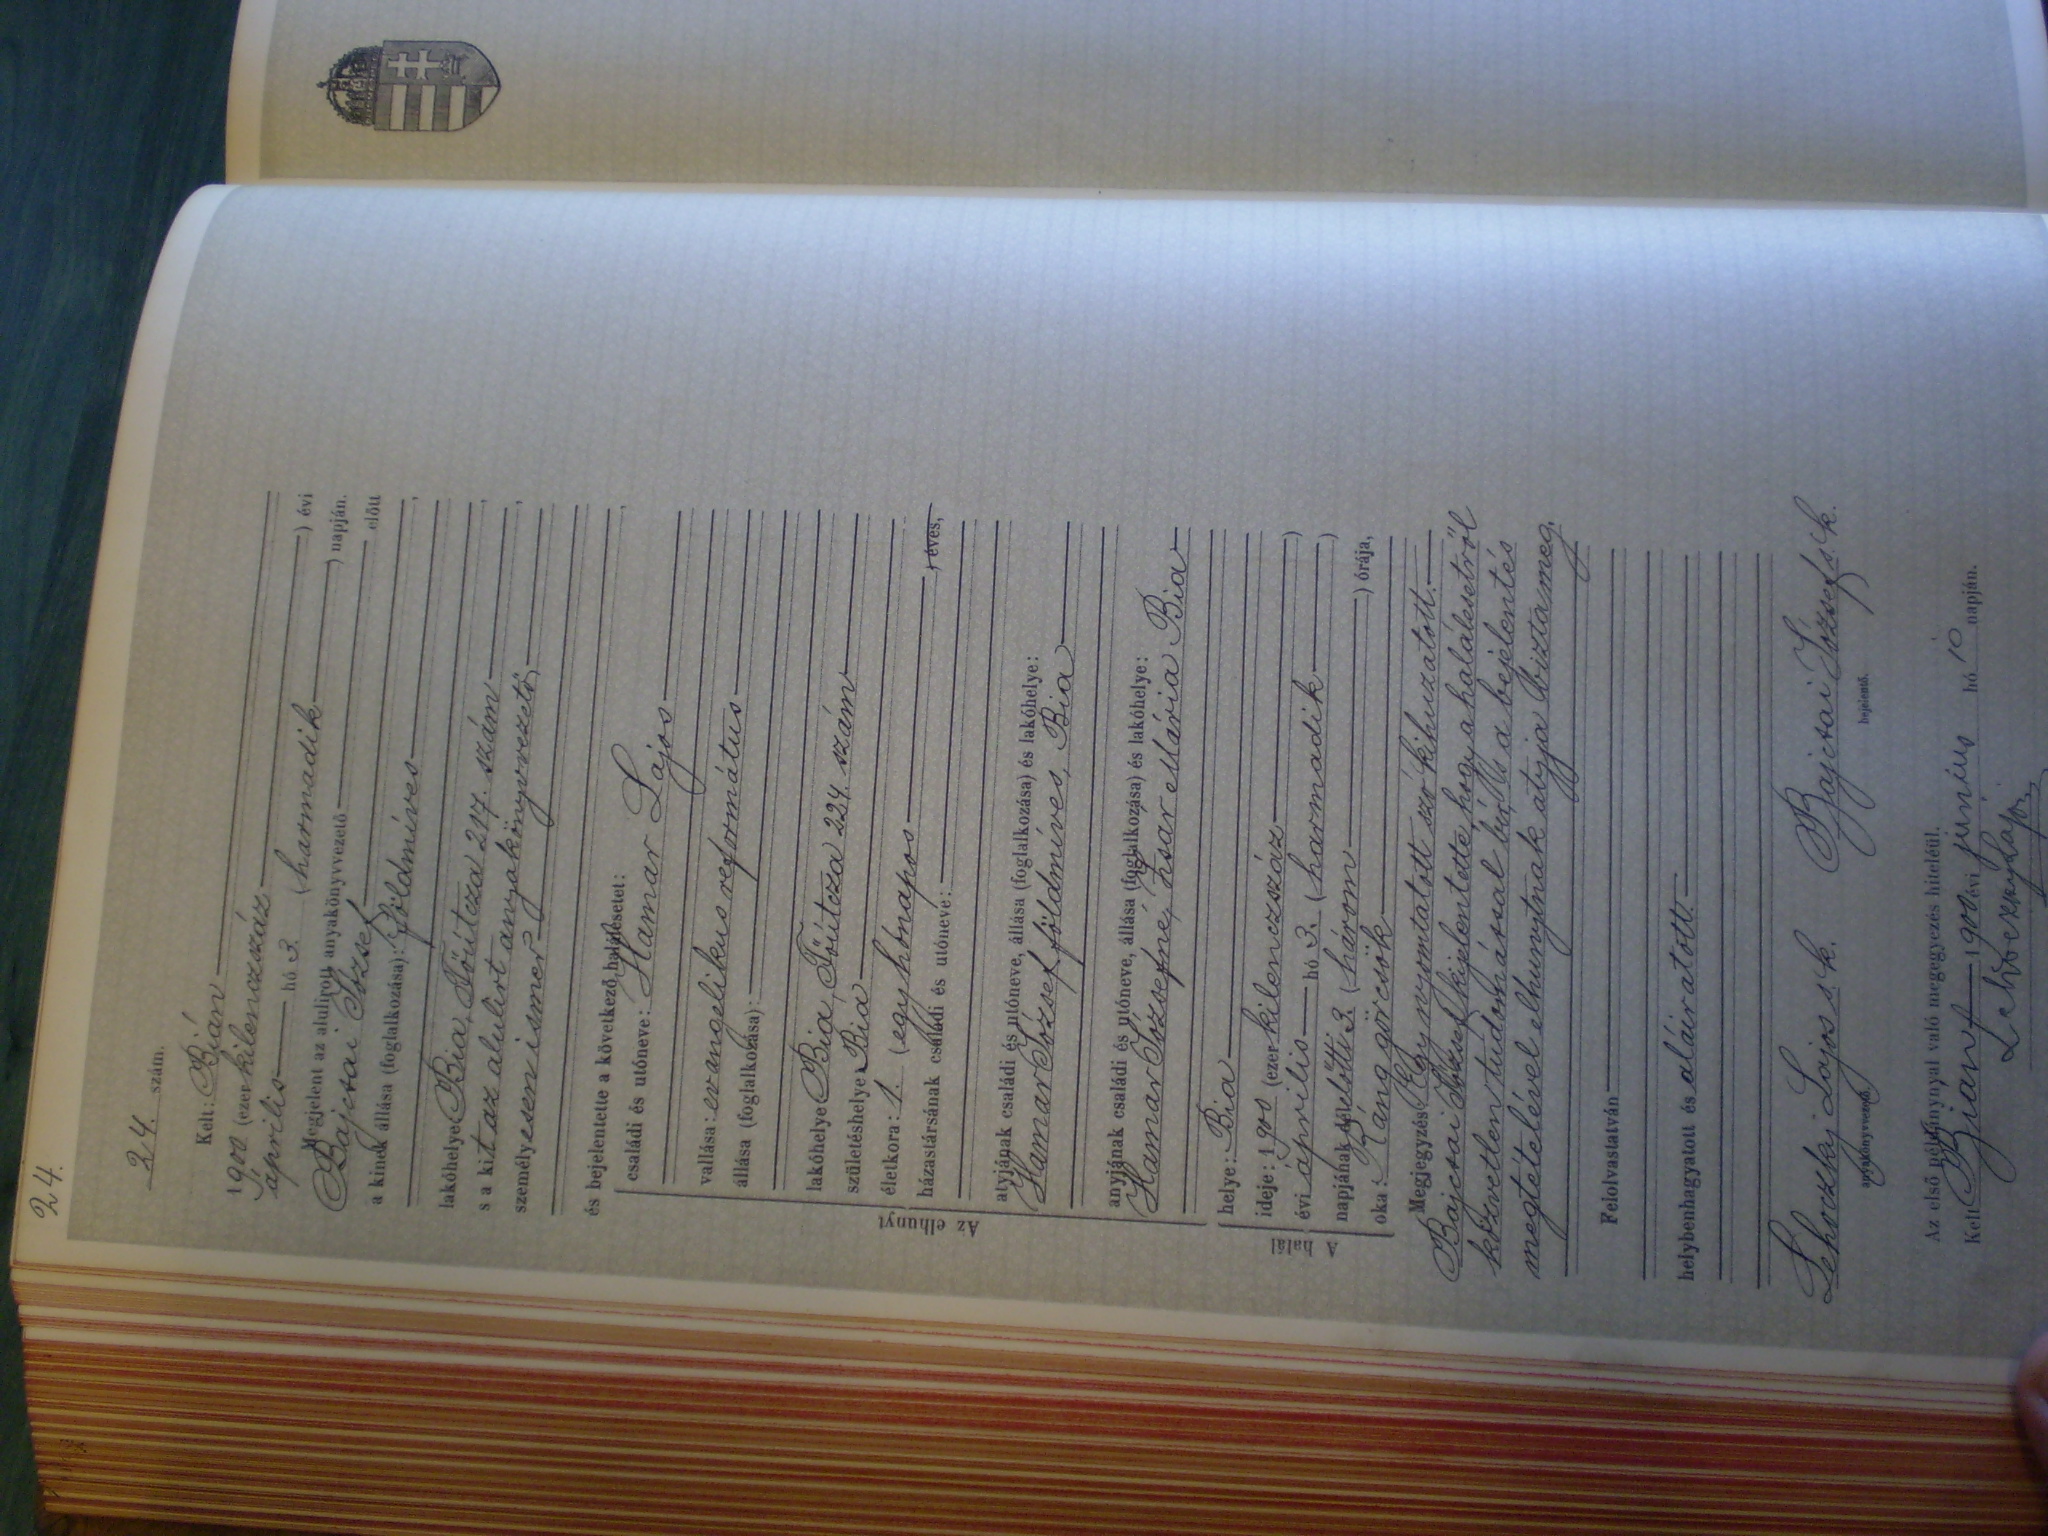 24.
24. szám.
Kelt: Bián
1900 (ezer kilenczszáz) évi
április hó 3. (harmadik) napján.
Megjelent az alulírott anyakönyvvezető előtt
Bajcsai József
a kinek állása (foglalkozása): földmíves,
lakóhelye Bia, Főútcza 217. szám,
s a kit az alulírt anyakönyvvezető,
személyesen ismer
és bejelentette a következő halálesetet:
Az elhunyt
családi és utóneve: Hamar Lajos
vallása: evangelikus református
állása (foglalkozása):
lakóhelye Bia, Főútcza 224. szám
születéshelye Bia
életkora: 1. (egy hónapos) éves,
házastársának családi és utóneve:
atyjának családi és utóneve, állása (foglalkozása) és lakóhelye:
Hamar József földmíves, Bia
anyjának családi és utóneve, állása (foglalkozása) és lakóhelye:
Hamar Józsefné, Mária Bia
A halál
helye: Bia
ideje: 1900 (ezer kilenczszáz)
évi április hó 3. (harmadik)
napjának délelőtti 3. (három) órája,
oka: Ráng görcsök
Megjegyzés Egy nyomtatott szó kihuzatott.
Bajcsai József kijelentette hogy a halálesetről
közvetlen tudomással bir, s a bejelentés
megtételével elhunytnak atyja bizta meg.
Felolvastatván
helybenhagyatott és aláiratott.
Lehoczky Lajos s. k. Bajcsai József s. k.
anyakönyvvezető. bejelentő.
Az első példánnyal való megegyezés hiteléül.
Kelt Bián 1900 évi június hó 10 napján.
Lehoczky Lajos